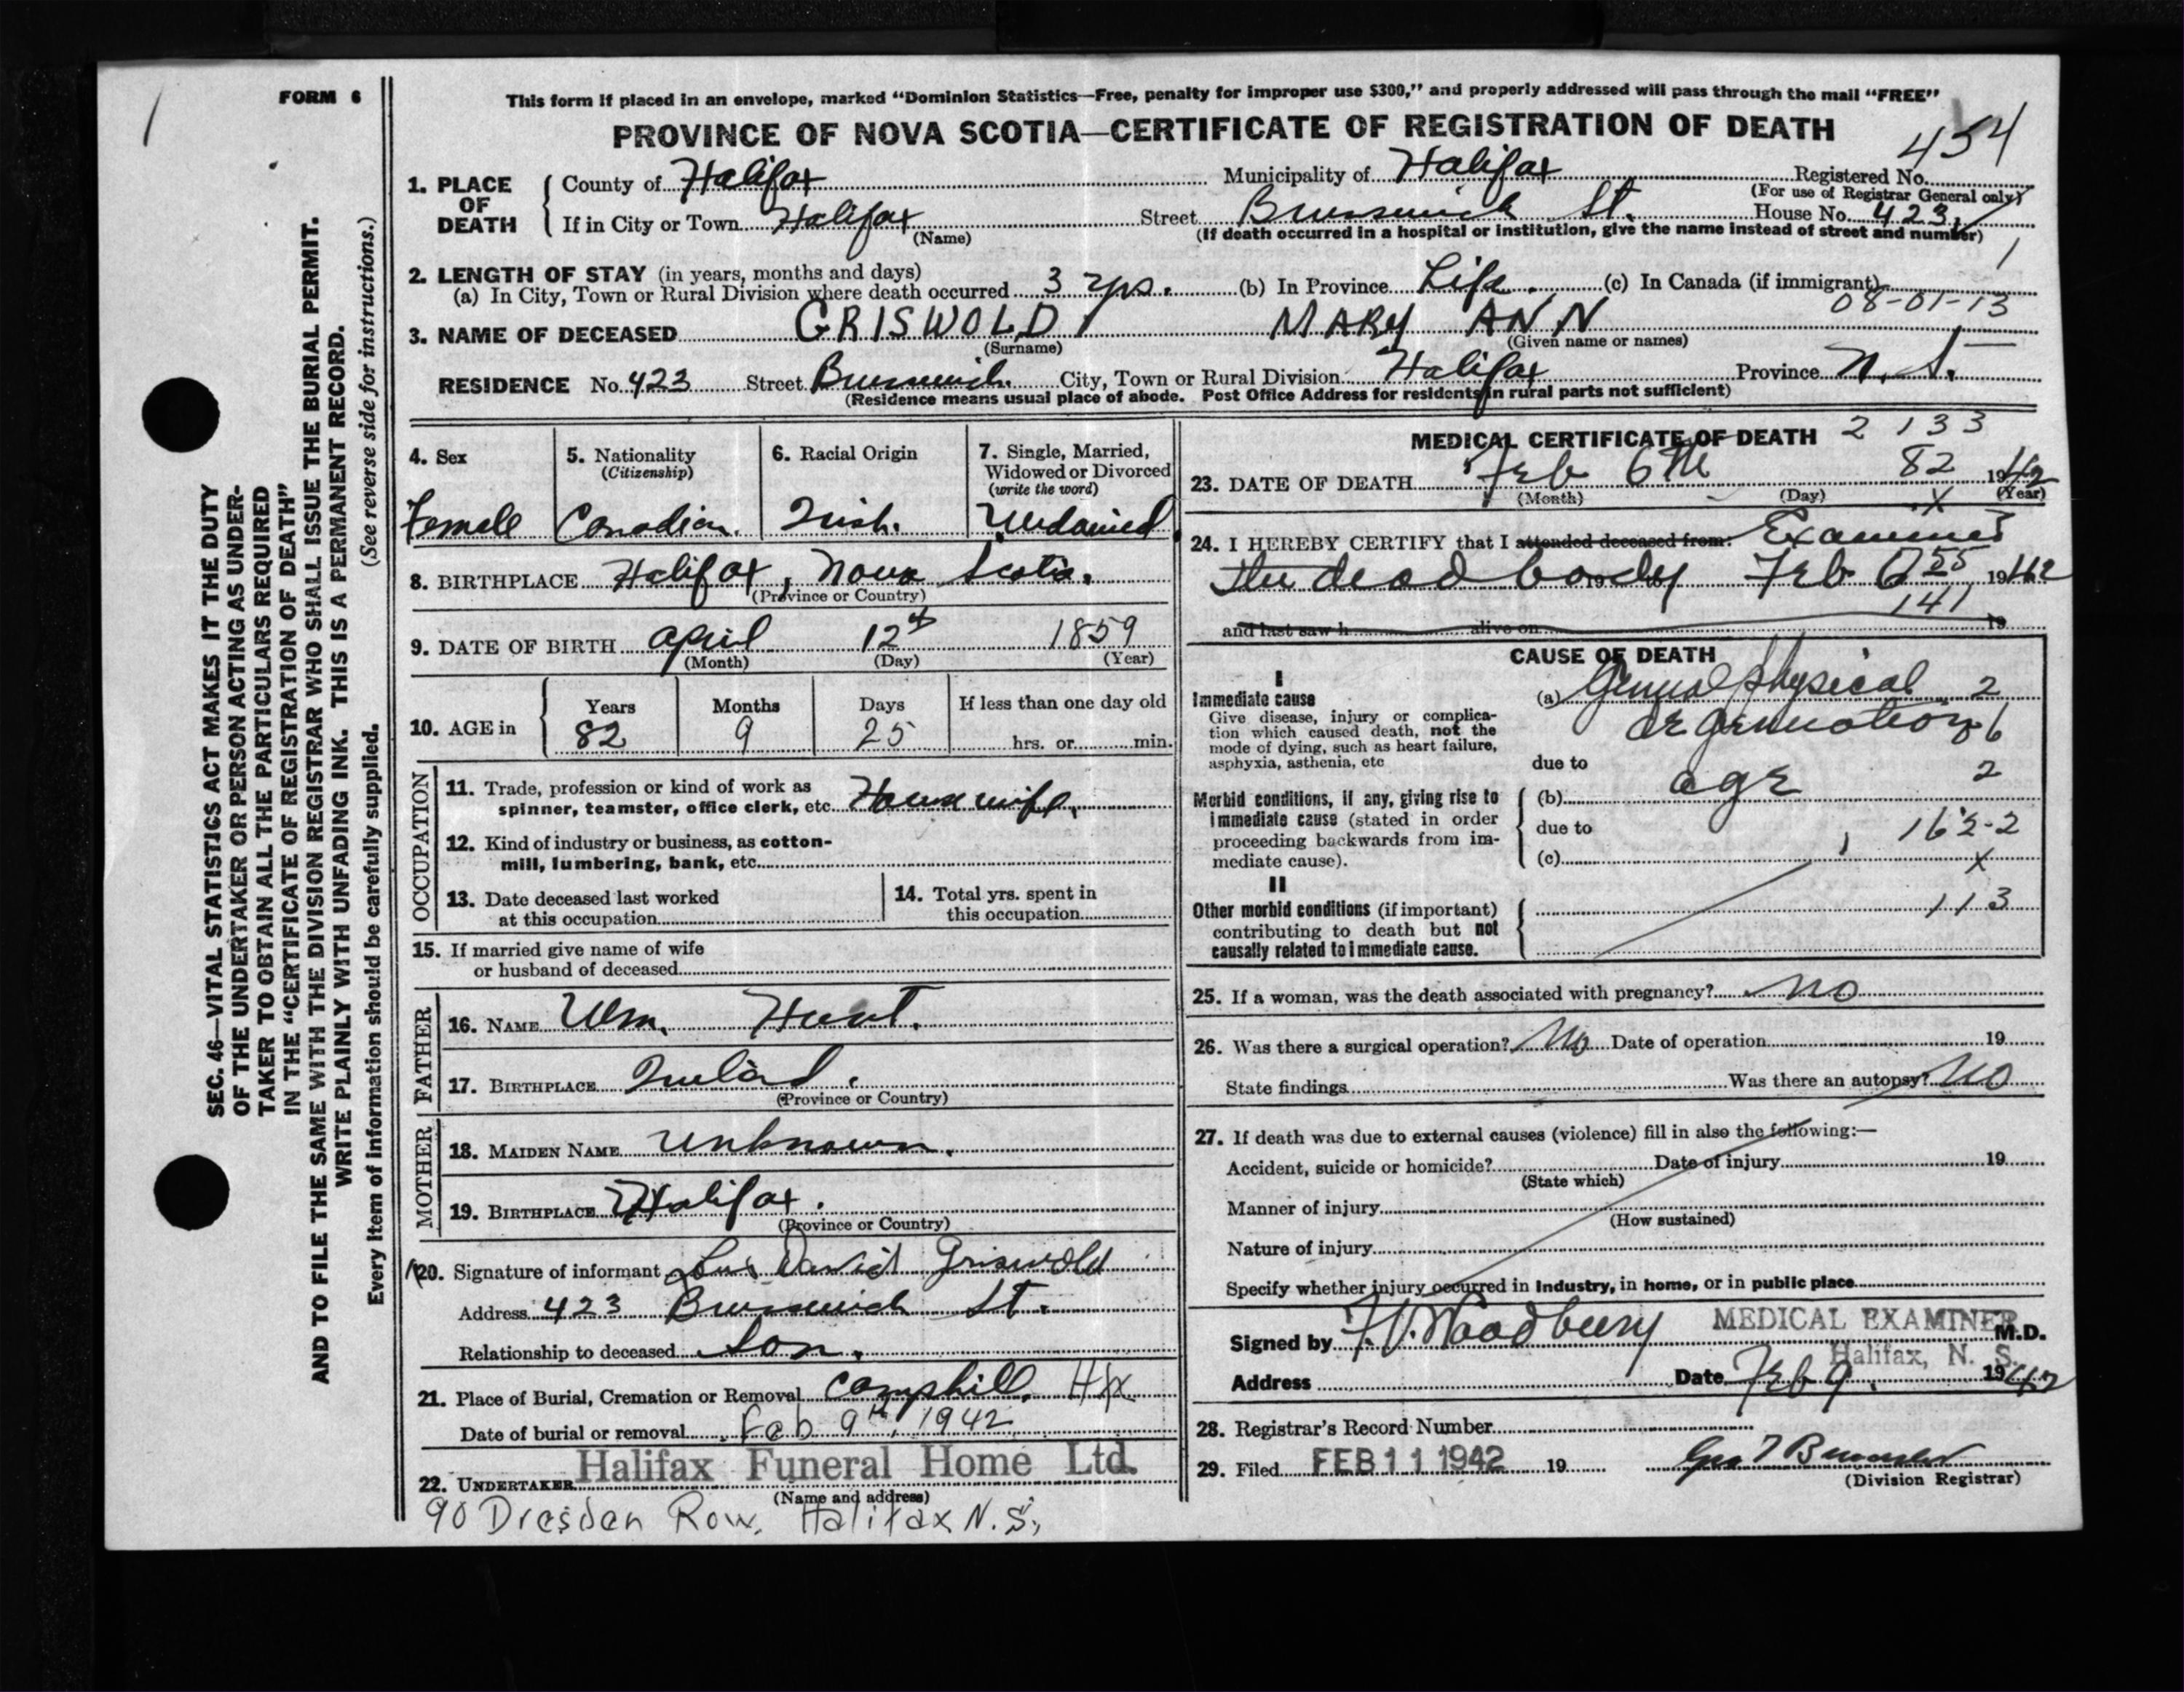 1
FORM 6
SEC. 46—VITAL STATISTICS ACT MAKES IT THE DUTY
OF THE UNDERTAKER OR PERSON ACTING AS UNDER-
TAKER TO OBTAIN ALL THE PARTICULARS REQUIRED
IN THE "CERTIFICATE OF REGISTRATION OF DEATH"
AND TO FILE THE SAME WITH THE DIVISION REGISTRAR WHO SHALL ISSUE THE BURIAL PERMIT.
WRITE PLAINLY WITH UNFADING INK. THIS IS A PERMANENT RECORD.
Every item of information should be carefully supplied. (See reverse side for instructions.)
This form if placed in an envelope, marked "Dominion Statistics—Free, penalty for improper use $300," and properly addressed will pass through the mail "FREE"
PROVINCE OF NOVA SCOTIA—CERTIFICATE OF REGISTRATION OF DEATH
454
1. PLACE OF DEATH
County of Halifax Municipality of Halifax Registered No.
(For use of Registrar General only)
If in City or Town Halifax Street Brunswick St. House No. 423
(Name) (If death occurred in a hospital or institution, give the name instead of street and number)
1
2. LENGTH OF STAY (in years, months and days)
(a) In City, Town or Rural Division where death occurred 3 yrs. (b) In Province Life. (c) In Canada (if immigrant)
08-01-13
3. NAME OF DECEASED GRISWOLD MARY ANN
(Surname) (Given name or names)
RESIDENCE No. 423 Street Brunswick City, Town or Rural Division Halifax Province N.S.
(Residence means usual place of abode. Post Office Address for residents in rural parts not sufficient)
4. Sex
Female
5. Nationality
(Citizenship)
Canadian.
6. Racial Origin
Irish.
7. Single, Married,
Widowed or Divorced
(write the word)
Widowed
8. BIRTHPLACE Halifax, Nova Scotia.
(Province or Country)
9. DATE OF BIRTH April 12th 1859
(Month) (Day) (Year)
10. AGE in
Years Months Days If less than one day old
82 9 25 hrs. or min.
OCCUPATION
11. Trade, profession or kind of work as
spinner, teamster, office clerk, etc. Housewife.
12. Kind of industry or business, as cotton-
mill, lumbering, bank, etc.
13. Date deceased last worked
at this occupation
14. Total yrs. spent in
this occupation
15. If married give name of wife
or husband of deceased
FATHER
16. NAME Wm. Hunt.
17. BIRTHPLACE Ireland.
(Province or Country)
MOTHER
18. MAIDEN NAME Unknown.
19. BIRTHPLACE Halifax.
(Province or Country)
20. Signature of informant David Griswold
Address 423 Brunswick St.
Relationship to deceased Son.
21. Place of Burial, Cremation or Removal Camphill. Hfx
Date of burial or removal Feb 9th, 1942
22. UNDERTAKER Halifax Funeral Home Ltd.
(Name and address)
90 Dresden Row, Halifax N.S.
MEDICAL CERTIFICATE OF DEATH 2133
82
23. DATE OF DEATH Feb 6th 1942
(Month) (Day) (Year)
x
24. I HEREBY CERTIFY that I attended deceased from: Examined
the dead body 19 Feb 6 1942
55
141
and last saw h alive on 19
CAUSE OF DEATH
I
Immediate cause
Give disease, injury or complica-
tion which caused death, not the
mode of dying, such as heart failure,
asphyxia, asthenia, etc
(a) General physical 2
degeneration 6
due to
Morbid conditions, if any, giving rise to
immediate cause (stated in order
proceeding backwards from im-
mediate cause).
(b) age 2
due to
162-2
(c)
x
II
Other morbid conditions (if important)
contributing to death but not
causally related to immediate cause.
113
25. If a woman, was the death associated with pregnancy? No
26. Was there a surgical operation? No Date of operation 19
State findings Was there an autopsy? No
27. If death was due to external causes (violence) fill in also the following:—
Accident, suicide or homicide? Date of injury 19
(State which)
Manner of injury
(How sustained)
Nature of injury
Specify whether injury occurred in industry, in home, or in public place
Signed by F.V. Woodbury MEDICAL EXAMINER M.D.
Halifax, N. S.
Address Date Feb 9. 1942
28. Registrar's Record Number
29. Filed FEB 11 1942 19
(Division Registrar)